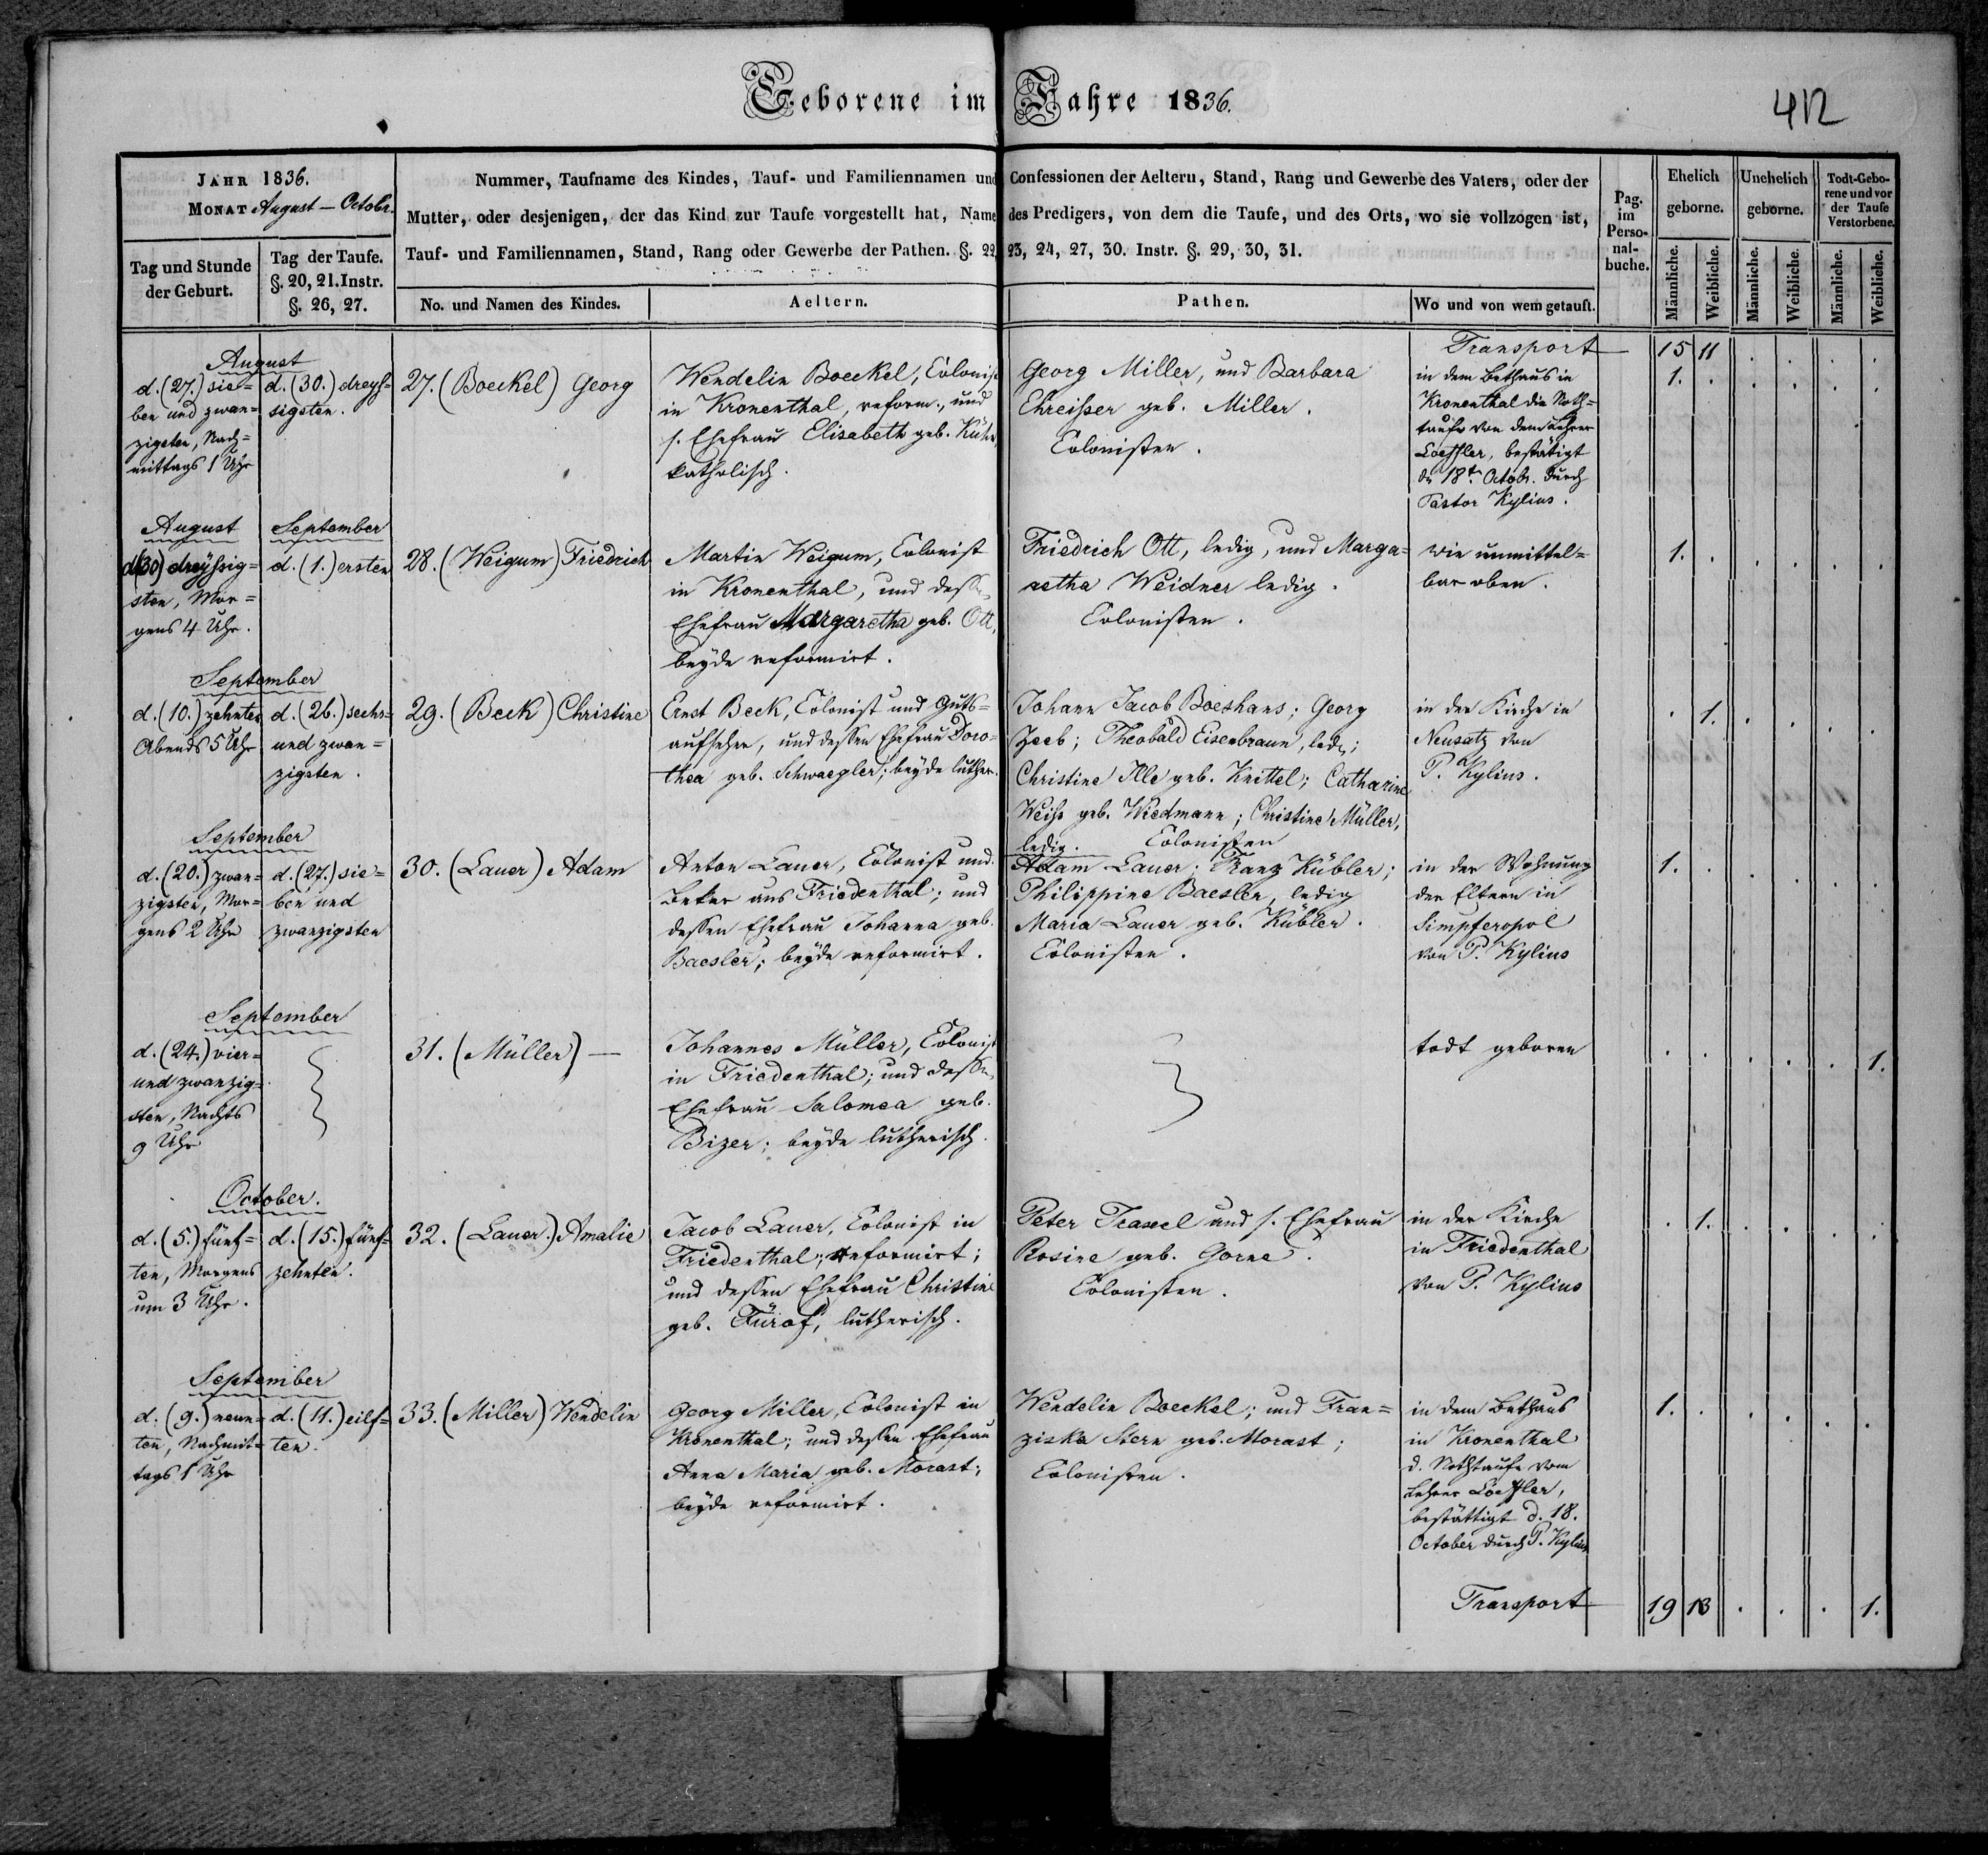 Geborene im Jahre 1836.
412
JAHR 1836.
MONAT August — Octobr.
Tag und Stunde der Geburt.
Tag der Taufe. §. 20, 21. Instr. §. 26, 27.
Nummer, Taufname des Kindes, Tauf- und Familiennamen und Confessionen der Aeltern, Stand, Rang und Gewerbe des Vaters, oder der
Mutter, oder desjenigen, der das Kind zur Taufe vorgestellt hat, Name des Predigers, von dem die Taufe, und des Orts, wo sie vollzogen ist,
Tauf- und Familiennamen, Stand, Rang oder Gewerbe der Pathen. §. 22, 23, 24, 27, 30. Instr. §. 29, 30, 31.
No. und Namen des Kindes.
Aeltern.
Pathen.
Wo und von wem getauft.
Pag. im Perso-nal-buche.
Ehelich geborne.
Unehelich geborne.
Todt-Gebo-rene und vor der Taufe Verstorbene.
Männliche. Weibliche. Männliche. Weibliche. Männliche. Weibliche.
Transport 15 11 . . . .
August
d. (27.) sie=
ben und zwan=
zigsten, Nach=
mittags 1 Uhr
d. (30.) dreys=
sigsten.
27. (Boeckel) Georg
Wendelin Boeckel, Colonist
in Kronenthal, reform., und
s. Ehefrau Elisabeth geb. Kühn,
katholisch.
Georg Miller, und Barbara
Ehreisser geb. Miller.
Colonisten.
in dem Bethaus in
Kronenthal die Noth=
taufe von dem Lehrer
Loeffler, bestätigt
dn 18t. Octobr. durch
Pastor Kylius.
1. . . . . .
August
d. (30) dreyssig=
sten, Mor=
gens 4 Uhr.
September
d. (1.) ersten
28. (Weigum) Friedrich
Martin Weigum, Colonist
in Kronenthal, und dessen
Ehefrau Margaretha geb. Ott,
beyde reformirt.
Friedrich Ott, ledig, und Marga=
retha Weidner ledig.
Colonisten.
wie unmittel=
bar oben.
1. . . . . .
September
d. (10.) zehnten
Abends 5 Uhr
d. (26.) sechs=
und zwan=
zigsten.
29. (Beck) Christine
Ernst Beck, Colonist und Guts=
aufseher, und dessen Ehefrau Doro=
thea geb. Schwaegler; beyde luther.
Johann Jacob Boeshans; Georg
Zeeb; Theobald Eisenbraun, led.;
Christine Ille geb. Knittel; Catharine
Weiss geb. Wiedmann; Christine Müller,
ledig. Colonisten
in der Kirche in
Neusatz von
P. Kylius.
. 1. . . . .
September
d. (20.) zwan=
zigsten, Mor=
gens 2 Uhr
d. (27.) sie=
ben und
zwanzigsten
30. (Lauer) Adam
Anton Lauer, Colonist und
Beker aus Friedenthal; und
dessen Ehefrau Johanna geb.
Baesler; beyde reformirt.
Adam Lauer; Franz Kübler;
Philippine Baesler, ledig
Maria Lauer geb. Kübler.
Colonisten.
in der Wohnung
der Eltern in
Simpferopol
von P. Kylius
1. . . . . .
September
d. (24.) vier=
und zwanzig=
sten, Nachts
9 Uhr
31. (Müller) —
Johannes Müller, Colonist
in Friedenthal; und dessen
Ehefrau Salomea geb.
Bizer; beyde lutherisch.
todt geboren
. . . . . 1.
October.
d. (5.) fünf=
ten, Morgens
um 3 Uhr.
d. (15.) fünf=
zehnten.
32. (Lauer.) Amalie
Jacob Lauer, Colonist in
Friedenthal; reformirt;
und dessen Ehefrau Christine
geb. lutherisch.
Peter und s. Ehefrau
Rosine geb. Gorne.
Colonisten.
in der Kirche
in Friedenthal
von P. Kylius
. 1. . . . .
September
d. (9.) neun=
ten, Nachmit=
tags 1 Uhr
d. (11.) eilf=
ten.
33. (Miller) Wendelin
Georg Miller, Colonist in
Kronenthal; und dessen Ehefrau
Anna Maria geb. Morast;
beyde reformirt.
Wendelin Boeckel; und Fran=
ziska Stern geb. Morast;
Colonisten.
in dem Bethaus
in Kronenthal
d. Nothtaufe vom
Lehrer Loeffler,
bestättigt d. 18.
October durch P. Kylius
1. . . . . .
Transport 19 13 . . . 1.